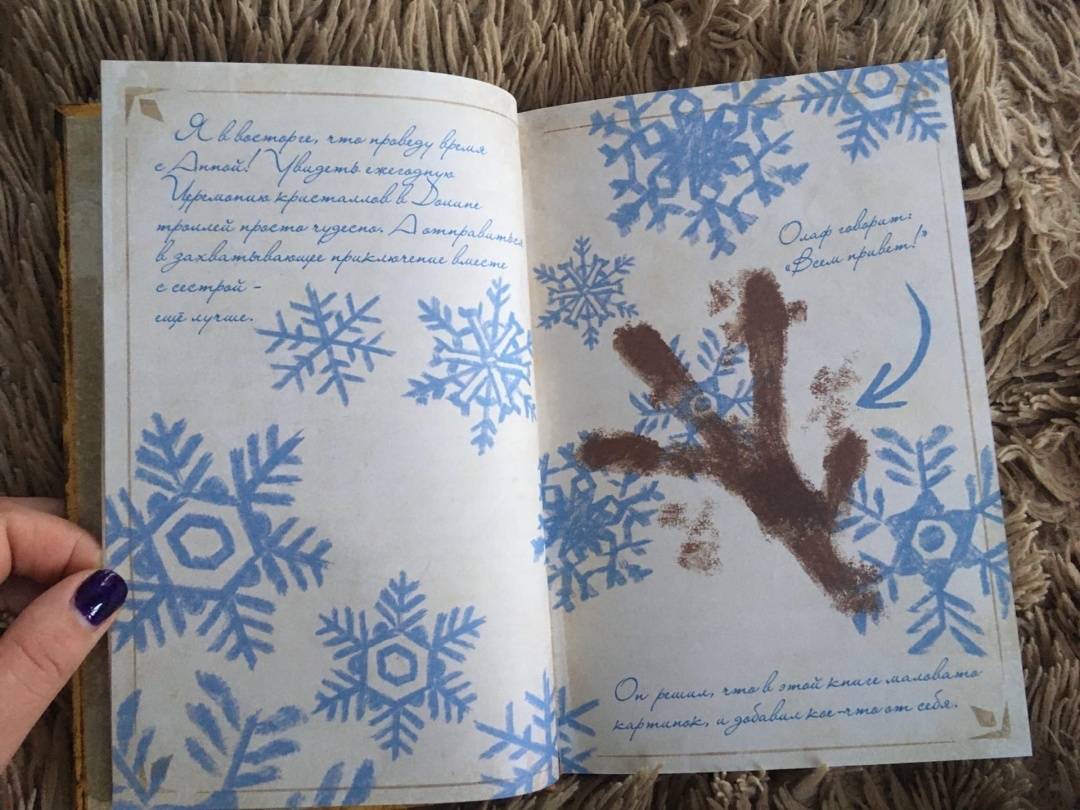 Я в восторге, что проведу время
с Анной! Увидеть ежегодную
Церемонию кристаллов в Долине
троллей просто чудесно. А отправиться
в захватывающее приключение вместе
с сестрой –
ещё лучше.
Олаф говорит:
«Всем привет!»
Он решил, что в этой книге маловато
картинок, и добавил кое-что от себя.